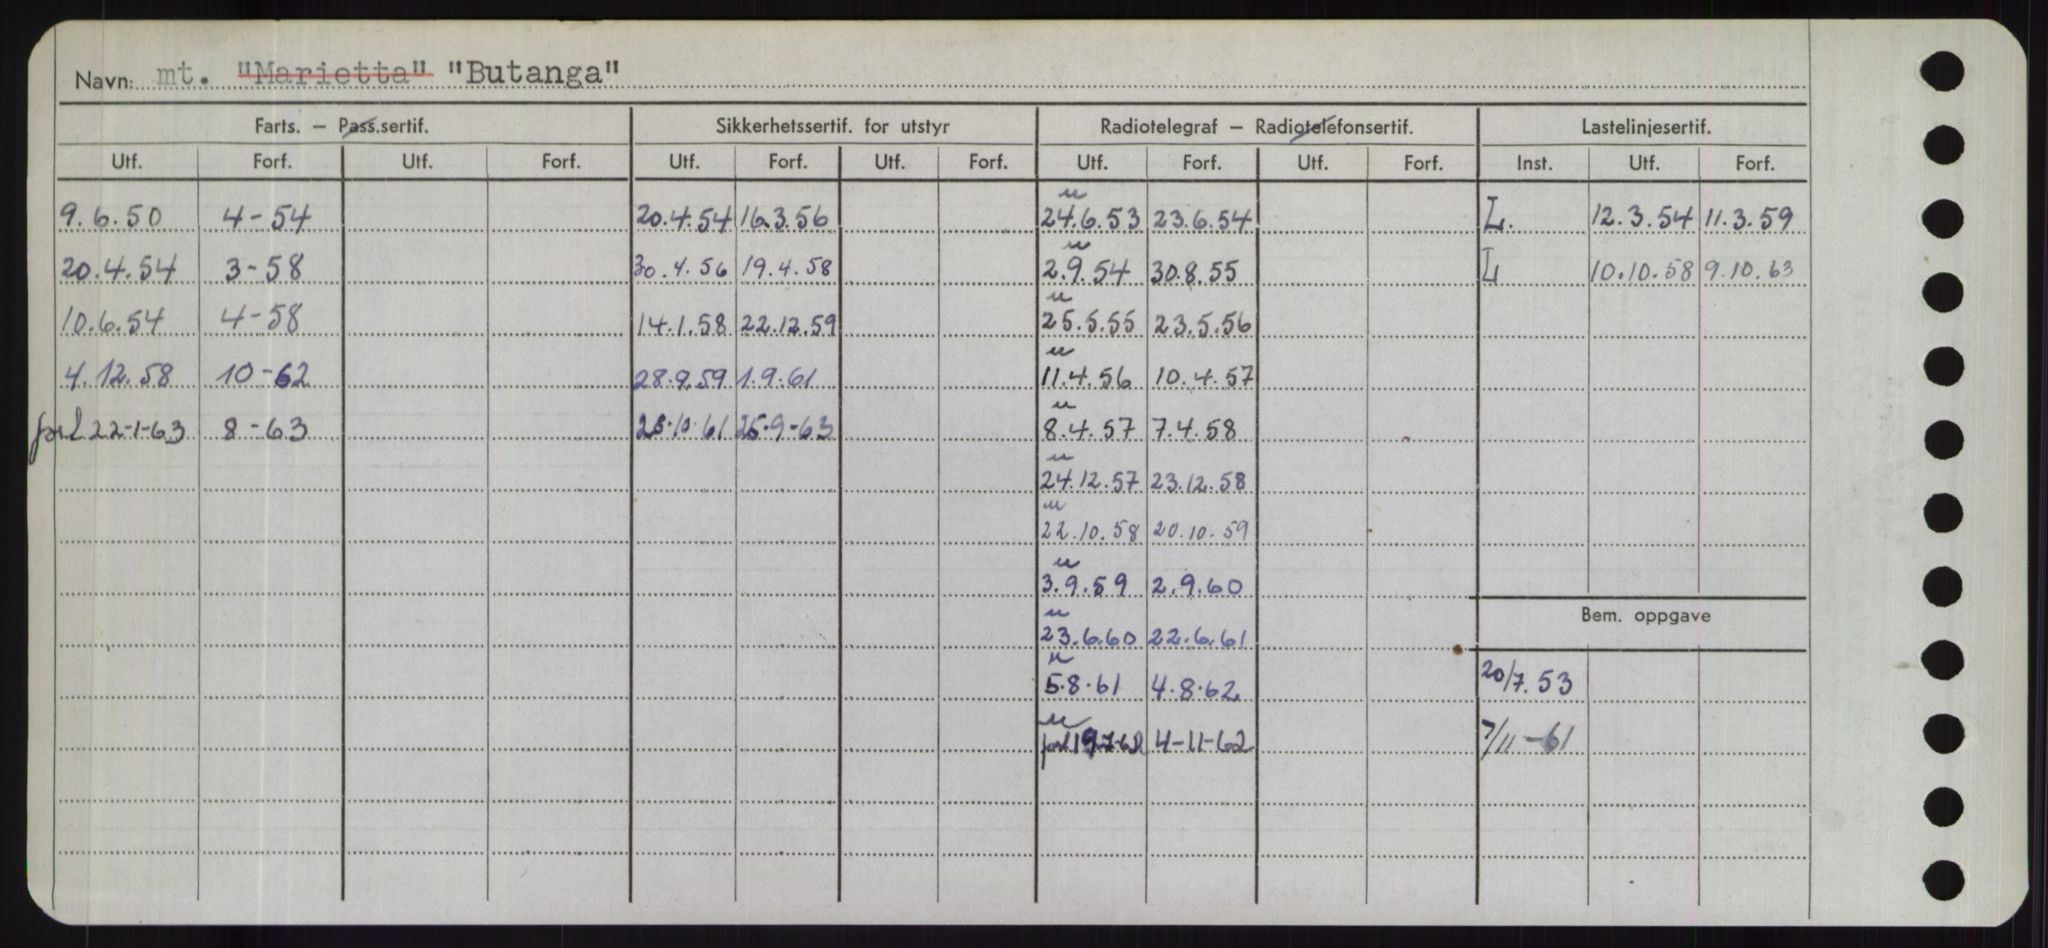 Navn: mt. "Marietta" "Butanga"
Farts. – Pass.sertif. Sikkerhetssertif. for utstyr Radiotelegraf – Radiotelefonsertif. Lastelinjesertif.
Utf. Forf. Utf. Forf. Utf. Forf. Utf. Forf. Utf. Forf. Utf. Forf. Inst. Utf. Forf.
u
9.6.50 4-54 20.4.54 16.3.56 24.6.53 23.6.54 L. 12.3.54 11.3.59
u
20.4.54 3-58 30.4.56 19.4.58 2.9.54 30.8.55 L 10.10.58 9.10.63
u
10.6.54 4-58 14.1.58 22.12.59 25.5.55 23.5.56
u
4.12.58 10-62 28.9.59 1.9.61 11.4.56 10.4.57
u
forl 22-1-63 8-63 10.61 9-63 8.4.57 7.4.58
u
24.12.57 23.12.58
u
22.10.58 20.10.59
u
3.9.59 2.9.60
Bem. oppgave
u
23.6.60 22.6.61
u
5.8.61 4.8.62 20/7.53
u
forl 4-11-62 7/11-61